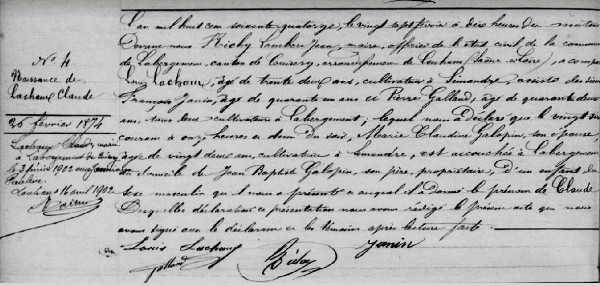 N° 4
Naissance de
Lachaux Claude
26 février 1874
Lachaux marié
à
le 3 1902
Louhans 16 avril 1902
L'an mil huit cent soixante quatorze, le vingt sept février à dix heures du matin
Devant nous Richy Lambert Jean maire, officier de l'état civil de la commune
de Labergement, canton de Cuisery, arrondissement de Louhans, Saône et Loire, a comparu
Louis Lachaux, âgé de trente deux ans, cultivateur à Simandre, assisté des sieurs
François Janin, âgé de quarante un ans et Pierre Galland, âgé de quarante deux
ans, tous deux cultivateurs à Labergement, lequel nous a déclaré que le vingt six
courant à onze heures et demi du soir, Marie Claudine Galopin, son épouse,
âgée de vingt deux ans, cultivatrice à Simandre, est accouchée à Labergement
domicile de Jean Baptiste Galopin, son père, propriétaire, d'un enfant du
sexe masculin qu'il nous a présenté et auquel il a donné le prénom de Claude.
Desquelles déclaration et présentation nous avons rédigé le présent acte que nous
avons signé avec le déclarant et les témoins après lecture faite.
Louis Lachaux
Galland Janin